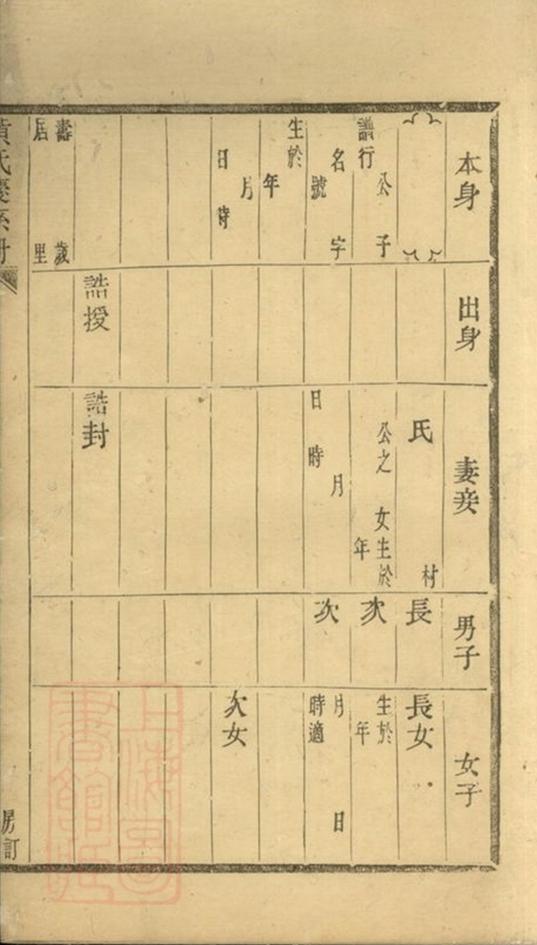 本身
諱行 公 子
名 字
號
生於
年
月
日 時
壽 歲
居 里
出身
誥授
妻妾
氏 村
公之 女生於
年
月
日 時
誥封
男子
長
次
次
女子
長女
生於
年
月 日
時適
次女
黃氏慶系冊
房訂
上海圖書館藏